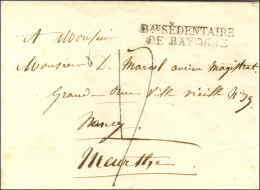 BAU SÉDENTAIRE
DE BAYONNE
A Monsieur
Monsieur D. Marcel ancien Magistrat
Grand rue Ville vieille N° 39
Nancy
Meurthe